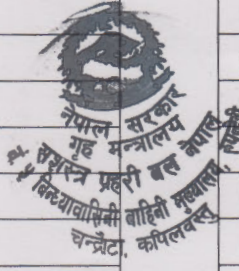 नेपाल सरकार
गृह मन्त्रालय
सशस्त्र प्रहरी बल नेपाल
नं. ५ बिन्ध्यावासिनी वाहिनी मुख्यालय
चन्द्रौटा, कपिलवस्तु